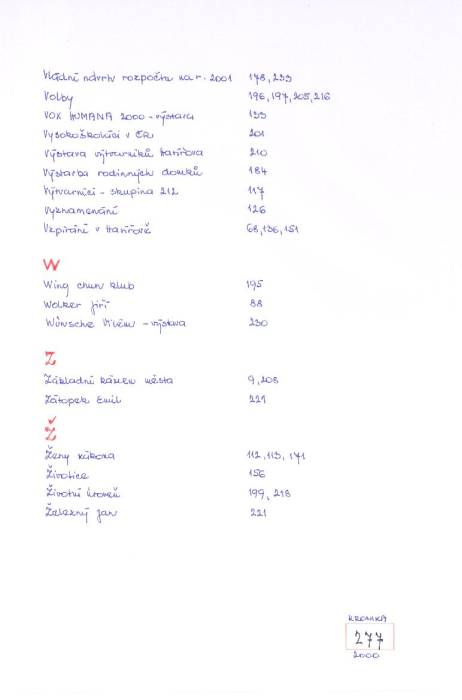 Vládní návrh rozpočtu na r. 2001 178, 233
Volby 196, 197, 205, 216
VOX HUMANA 2000 - výstava 133
Vysokoškoláci v ČR 201
Výstava výtvarníků Havířova 210
Výstavba rodinných domků 184
Výtvarníci - skupina 212 117
Vyznamenání 126
Vzpírání v Havířově 68, 136, 151
W
Wing chun klub 195
Wolker Jiří 88
Wünsche Vilém - výstava 230
Z
Základní kámen města 9, 208
Zátopek Emil 221
Ž
Ženy 112, 113, 171
Životice 156
Životní úroveň 199, 218
Železný Jan 221
KRONIKA
277
2000